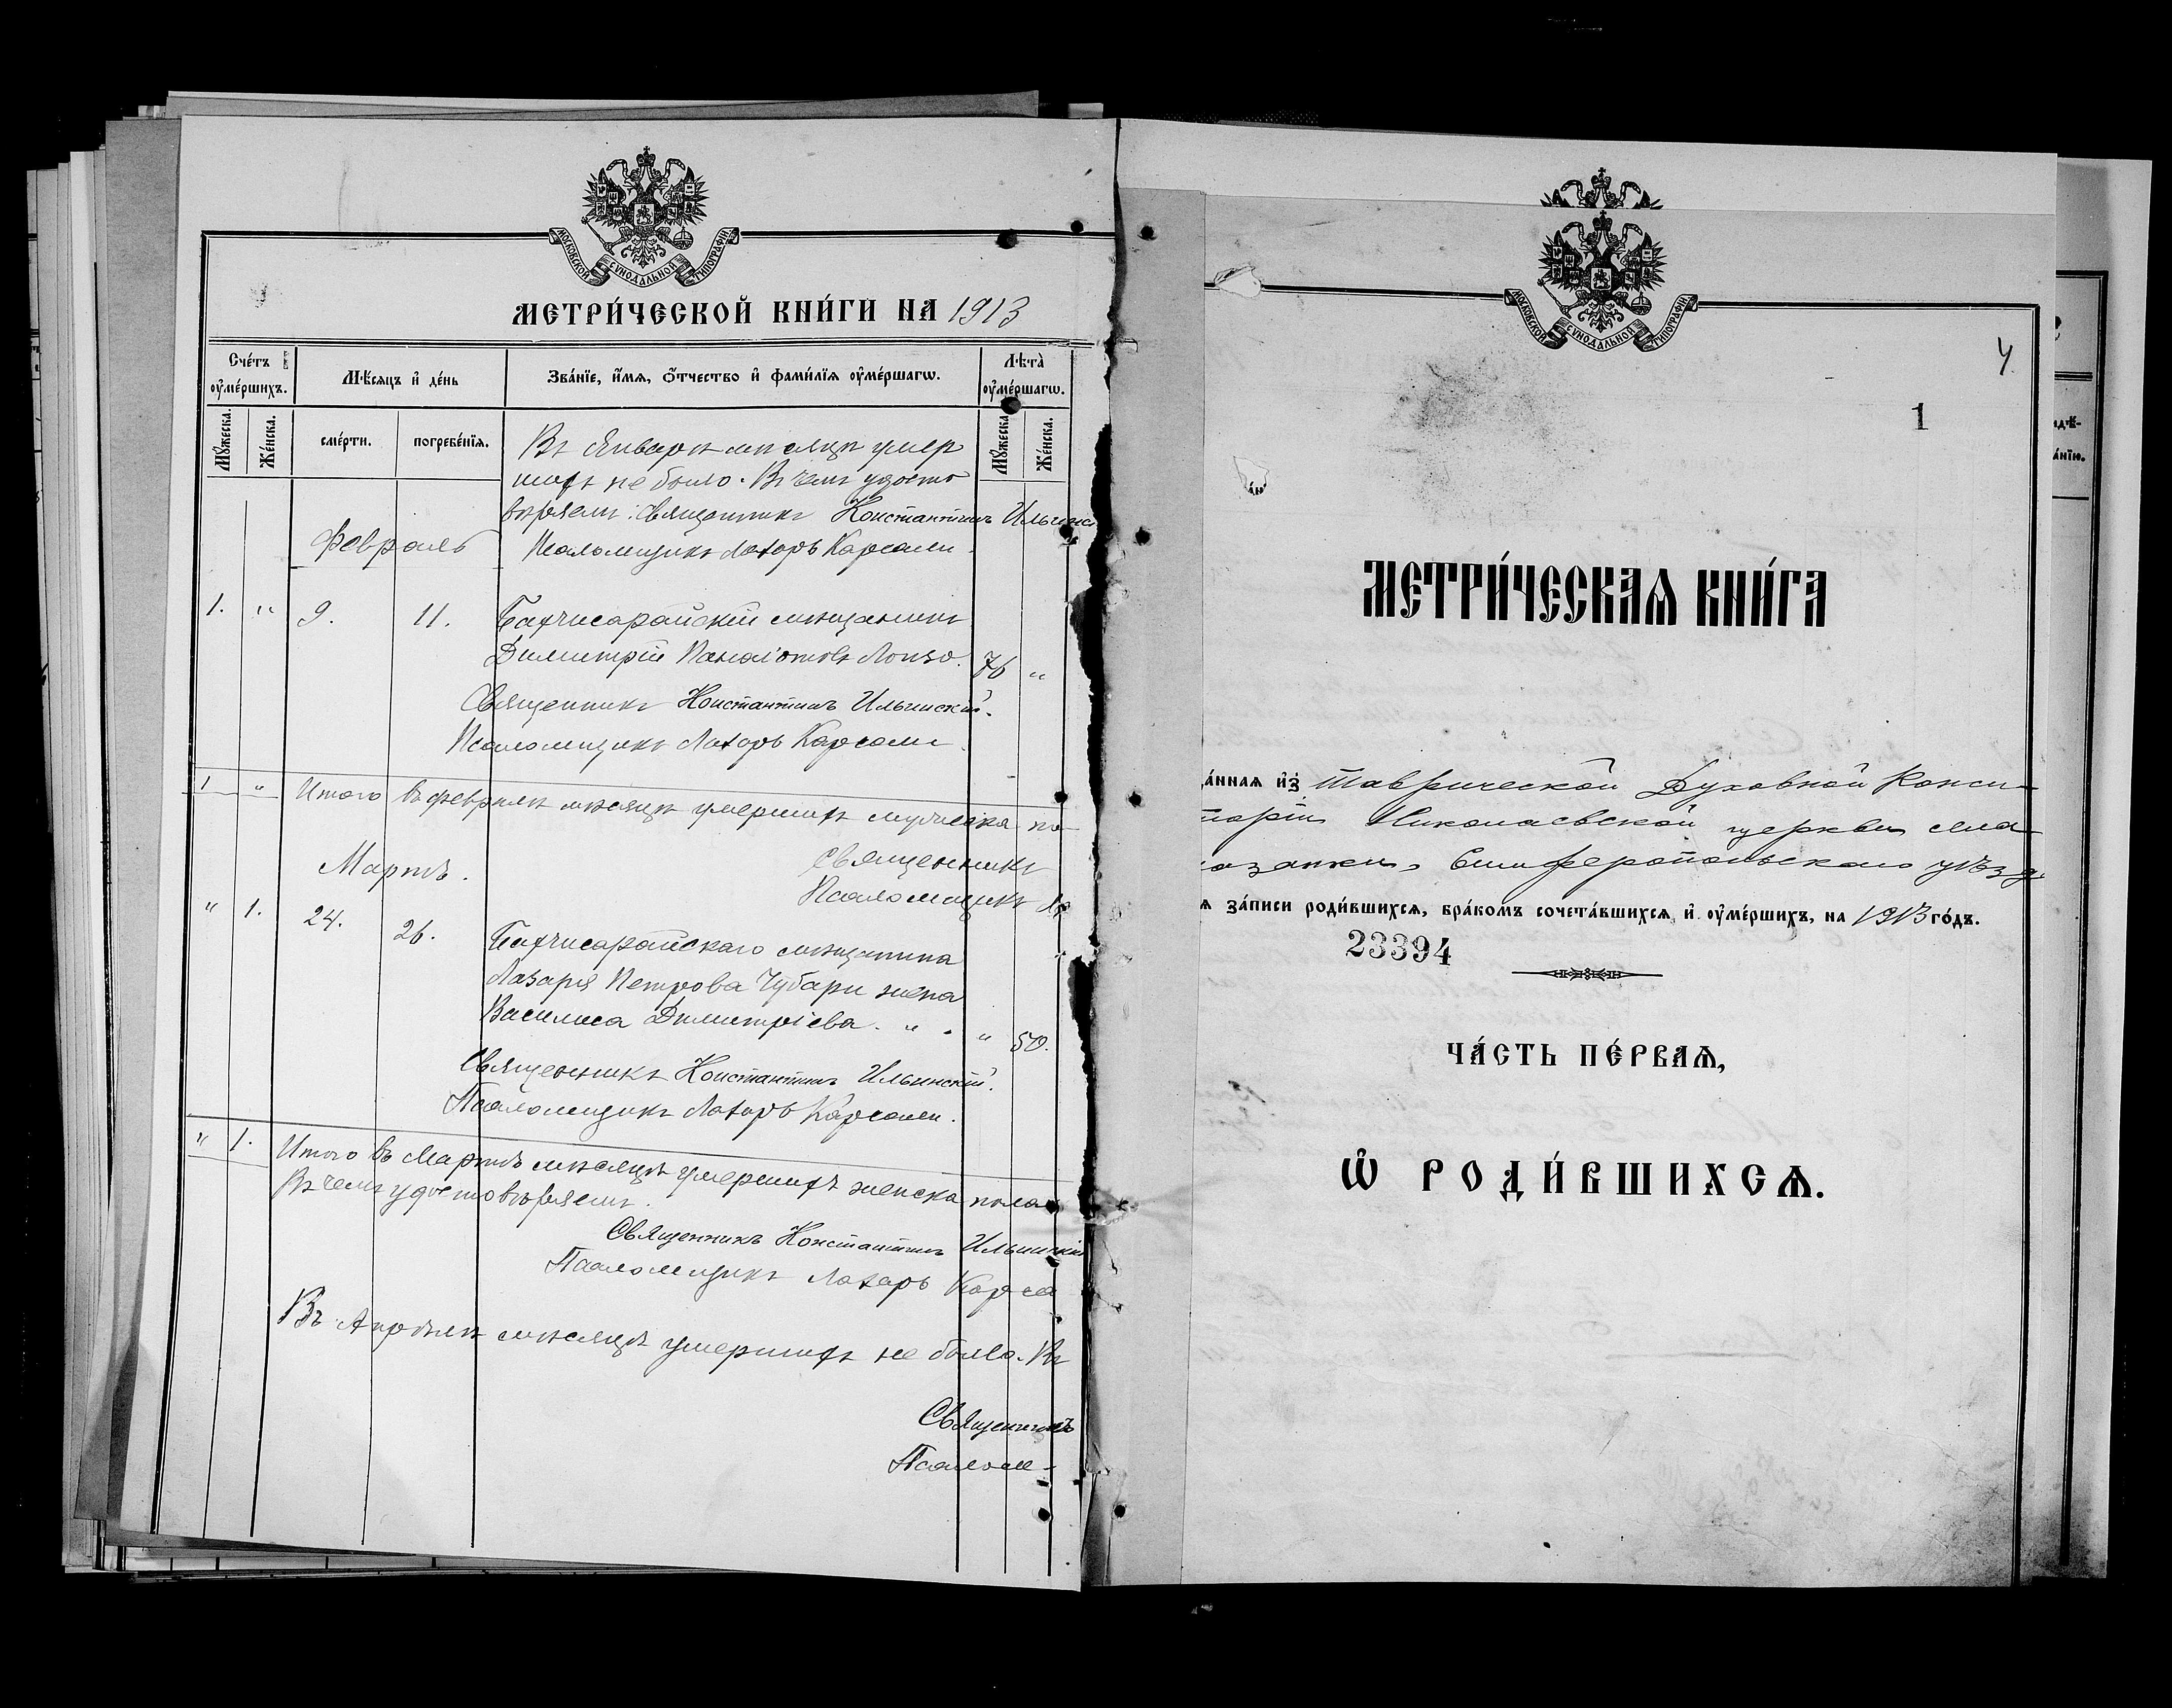 МОСКОВСКОЙ СУНОДАЛЬНОЙ ТИПОГРАФІИ
МЕТРИ́ЧЕСКОЙ КНИ́ГИ НА 1913
Сче́тъ оу҆ме́ршихъ.
Мѣ́сяцъ и҆ де́нь
Зва́нїе, и҆́мя, ѻ҆́тчество и҆ фами́лїя оу҆ме́ршагѡ.
Лѣта̀ оу҆ме́ршагѡ.
Мꙋ́жеска.
Же́нска.
сме́рти.
погребе́нїя.
Мꙋ́жеска
Же́нска.
Въ Январѣ мѣсяцѣ умер
шихъ не было. Въ чемъ удосто
вѣряемъ: Священникъ Константинъ Ильинс
Февраль
Псаломщикъ Лазарь Карсали
1. " 9. 11. Бахчисарайскій мѣщанинъ
Димитрій Панаіотовъ Лонзо. 76 "
Священникъ Константинъ Ильинскій.
Псаломщикъ Лазарь Карсали
1 " Итого въ февралѣ мѣсяцѣ умершихъ мужеска по
Священникъ
Мартъ.
Псаломщикъ Ла
" 1. 24. 26. Бахчисарайскаго мѣщанина
Лазаря Петрова Чубари жена
Василиса Димитріева. " . " 50.
Священникъ Константинъ Ильинскій.
Псаломщикъ Лазарь Карсали.
" 1. Итого въ Мартѣ мѣсяцѣ умершихъ женска пола
Въ чемъ удостовѣряемъ.
Священникъ Константинъ Ильинскій
Псаломщикъ Лазарь Карса
Въ Апрѣлѣ мѣсяцѣ умершихъ не было. Въ
Священникъ
Псалом-
МОСКОВСКОЙ СУНОДАЛЬНОЙ ТИПОГРАФІИ
4
1
МЕТРИ́ЧЕСКАѦ КНИ́ГА
а́нная и҆з̾ Таврической Духовной Конси-
торіи Николаевской церкви села
озанки, Симферопольскаго уѣзд.
я за́писи роди́вшихся, бра́комъ сочета́вшихся и҆ оу҆ме́ршихъ, на 1913 го́дъ.
23394
ЧА́СТЬ ПЕ́РВАѦ,
Ѽ РОДИ́ВШИХСѦ.